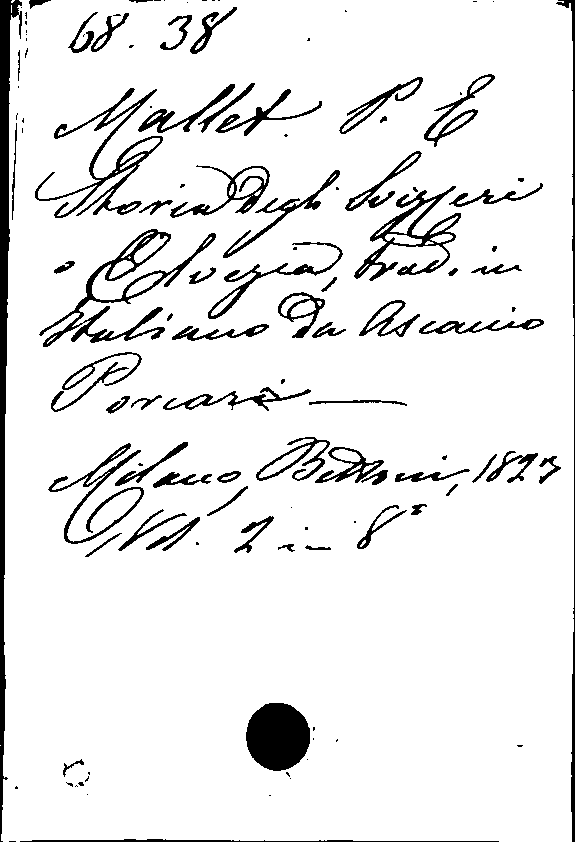 68. 38
Mallet. P. E
Storia degli Svizzeri
o Elvezia, trad. in
Italiano da Ascanio
Porcari —
Milano, Bettoni, 1823
Vol. 2 in 8°